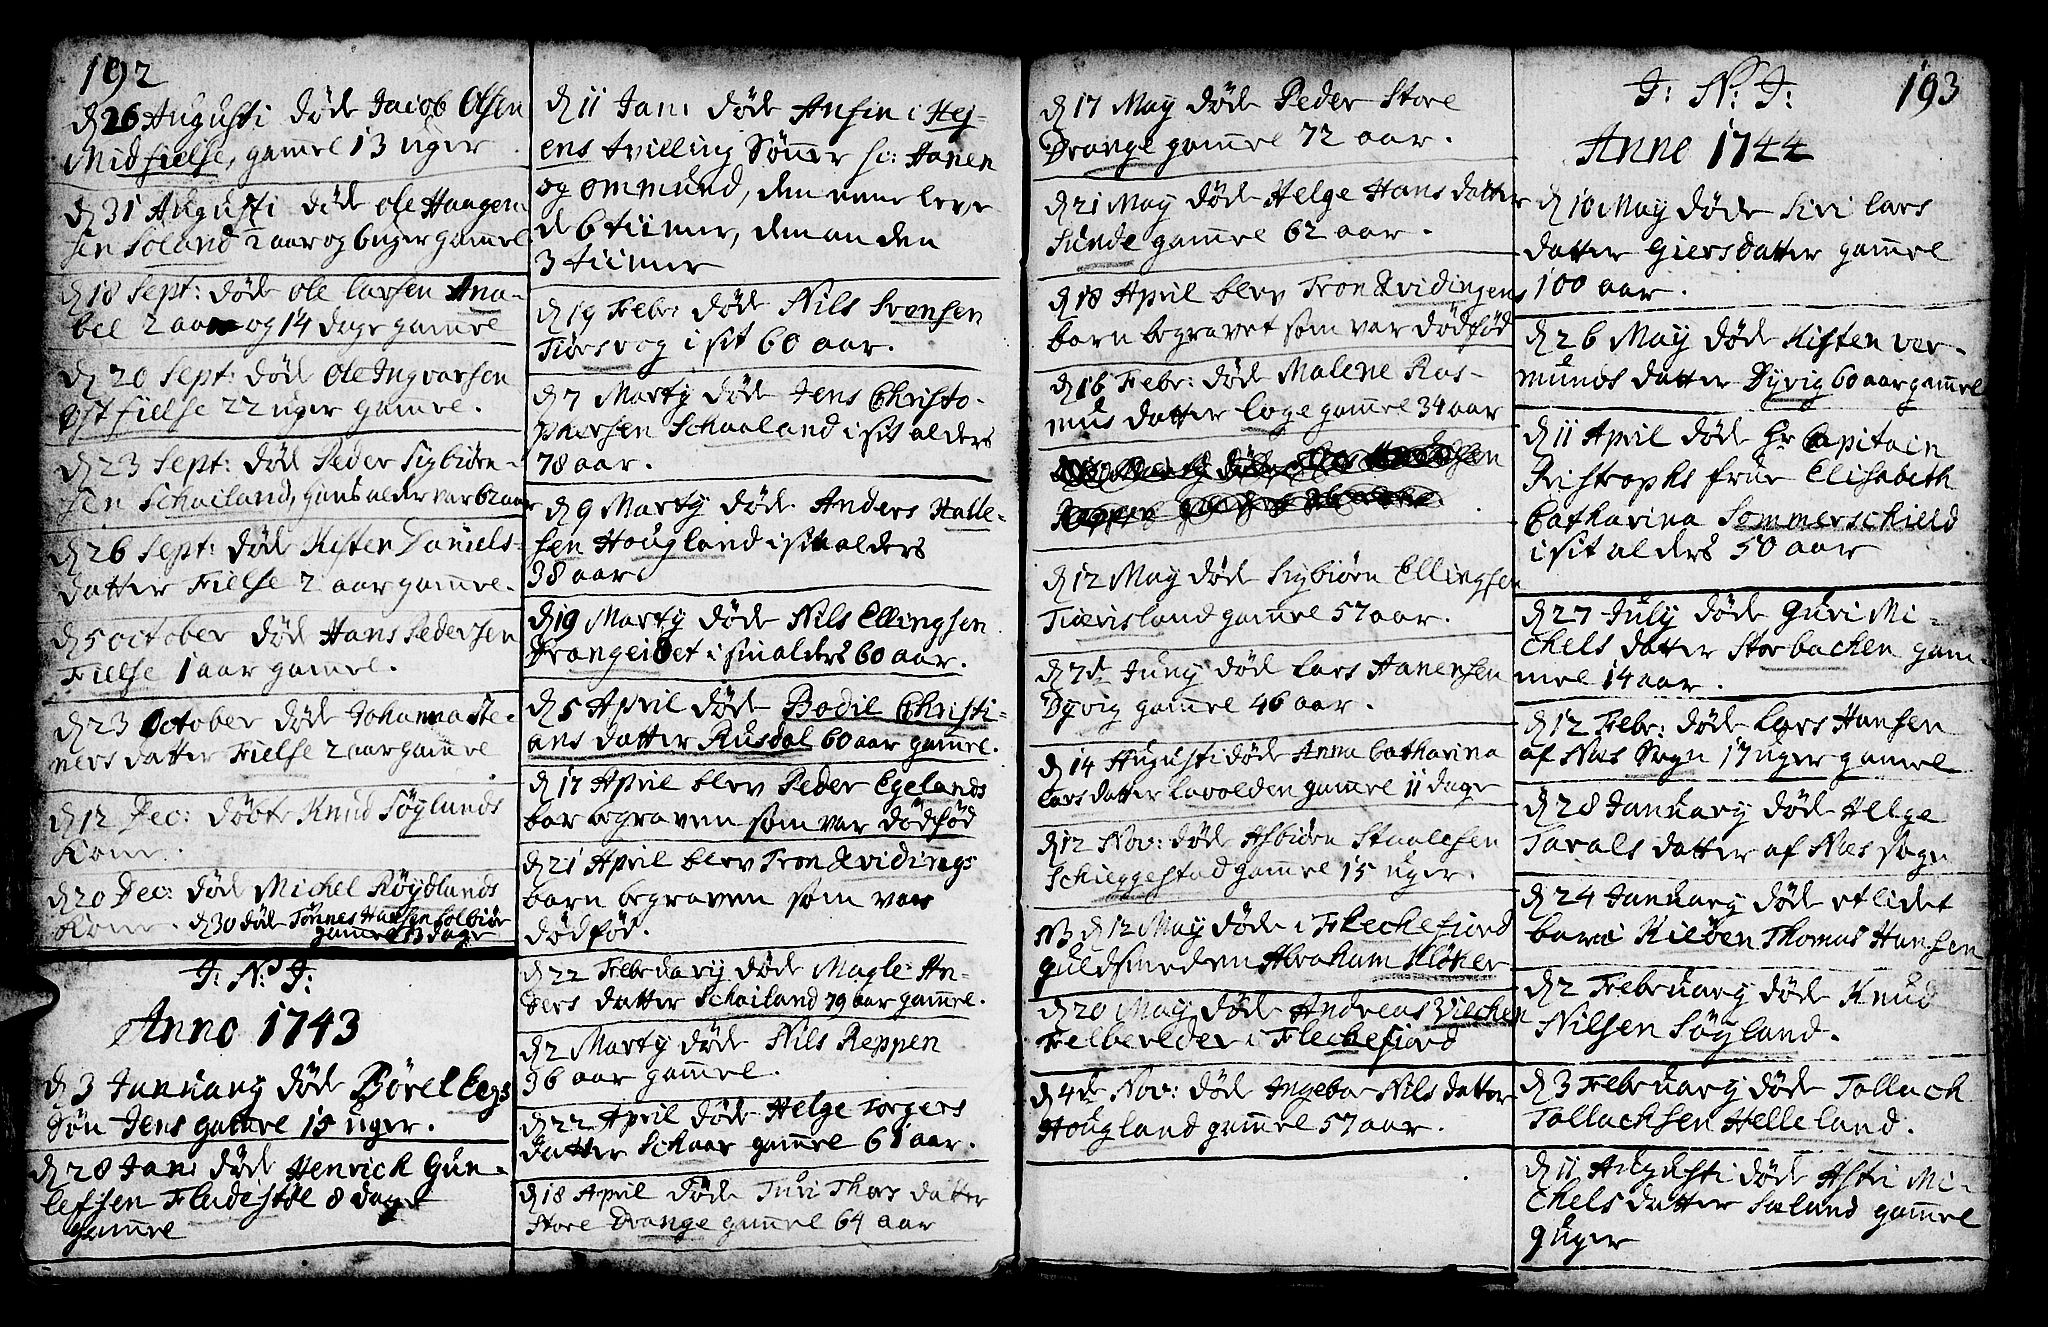 192
d 26 Augusti døde Jacob Olsen
Midfielse, gamel 13 uger
d 31 Augusti døde Ole Haagen-
sen Søland 2 aar og 6 uger gamel
d 18 Sept: døde Ole Larsen Ana-
bel 2 aar og 14 dage gamel
d 20 Sept: døde Ole Ingvarsen
Østfielse 22 uger gamel.
d 23 Sept: døde Peder Sigbiørn-
sen Schailand, hans alder var 62 aar
d 26 Sept: døde Kisten Daniels-
datter Fielse 2 aar gamel.
d 5 October døde Hans Pedersen
Fielse 1 aar gamel.
d 23 October døde Johanna Ste-
ners datter Fielse 2 aar gamel
d 12 Dec: døde Knud Søglands
Kone.
d 20 Dec: døde Michel Røydlands
Kone. d 30 døde Tønnes Hansen Solbiør
gamel 13 dage
J: N: J:
Anno 1743
d 3 January døde Børel Legs
Søn Jens gamel 15 uger.
d 28 Jan: døde Henrich Gun-
lefsen Fladestøl 8 dage
gamel
d 11 Jan: døde Ansin i Hej-
ens tvilling Sønner sc: Hanen
og Ommund, den ene leve
de 6 tiimer, den anden
3 tiimer
d 19 Febr: døde Nils Svensen
Tiørsvog i sit 60 aar.
d 7 Marty døde Jens Christo-
phersen Schaaland i sit alders
78 aar.
d 9 Marty døde Anders Halle-
sen Hougland i sit alders
38 aar
d 19 Marty døde Nils Ellingsen
Drangeidet i sin alders 60 aar.
d 5 April døde Bodil Christi-
ans datter Rusdal 60 aar gamel.
d 17 April blev Peder Egelands
bar begraven som var dødfød
d 21 April blev Tron Qvidings
barn begraven som var
dødfød.
d 22 February døde Magle An-
ders datter Schailand 79 aar gamel.
d 2 Marty døde Nils Reppen
36 aar gamel.
d 22 April døde Helge Torgers
datter Schaar gamel 61 aar.
d 18 April døde Turi Thors datter
Store Drange gamel 64 aar
d 17 May døde Peder Store
Drange gamel 72 aar.
d 21 May døde Helge Hans datter
Sunde gamel 62 aar.
d 18 April blev Tron Qvidingens
barn begravet som var dødfød
d 16 Febr: døde Malene Ras-
mus datter Loge gamel 34 aar
Reppen
d 12 May døde Sigbiørn Ellingsen
Tiørisland gamel 57 aar.
d 7de Juny død Lars Hanensen
Dyvig gamel 46 aar.
d 14 Augusti døde Anna Catharina
Lars datter Lavolden gamel 11 dage
d 12 Nov: døde Asbiørn Staalesen
Schieggestad gamel 15 uger.
NB d 12 May døde i Flechefiord
guldsmeden Abraham Kløker
d 20 May døde Andreas Vilchen
Felbereder i Flechefiord
d 4de Nov: døde Ingebor Nils datter
Hougland gamel 57 aar.
193
J: N: J:
Anno 1744
d 10 May døde Siri Lars
datter Giersdatter gamel
100 aar.
d 26 May døde Kisten Ver-
munds datter Dyvig 60 aar gamel
d 11 April døde Hr Capitain
Fristrophs frue Elisabeth
Catharina Sommerschield
i sit alders 50 aar
d 27 July døde Guri Mi-
chels datter Storbachen gam-
mel 14 aar.
d 12 Febr: døde Lars Hansen
af Næs Sogn 17 uger gamel
d 28 January døde Helge
Tarals datter af Næs sogn
d 24 January døde et lidet
barn i Kiøen Thomas Hansen
d 2 February døde Knud
Nilsen Søgland.
d 3 February døde Tollach
Tollachsen Helleland.
d 11 Augusti døde Astri Mi-
chels datter Sæland gamel
9 uger